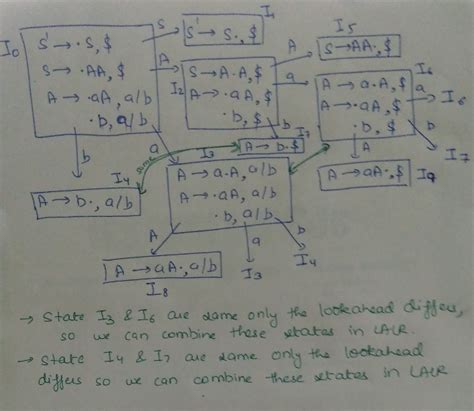 I0
S' → ·S, $
S → ·AA, $
A → ·aA, a/b
·b, a/b
S
S' → S·, $
I1
A
I2
S → A·A, $
A → ·aA, $
·b, $
A
I5
S → AA·, $
a
I6
A → a·A, $
A → ·aA, $
·b, $
a
I6
b
I7
A
A → aA·, $
I9
b
I7
A → b·$
same
b
I4
A → b·, a/b
a
I3
A → a·A, a/b
A → ·aA, a/b
·b, a/b
A
A → aA·, a/b
I8
a
I3
b
I4
→ State I3 & I6 are same only the lookahead differs,
so we can combine these states in LALR.
→ State I4 & I7 are same only the lookahead
differs so we can combine these states in LALR